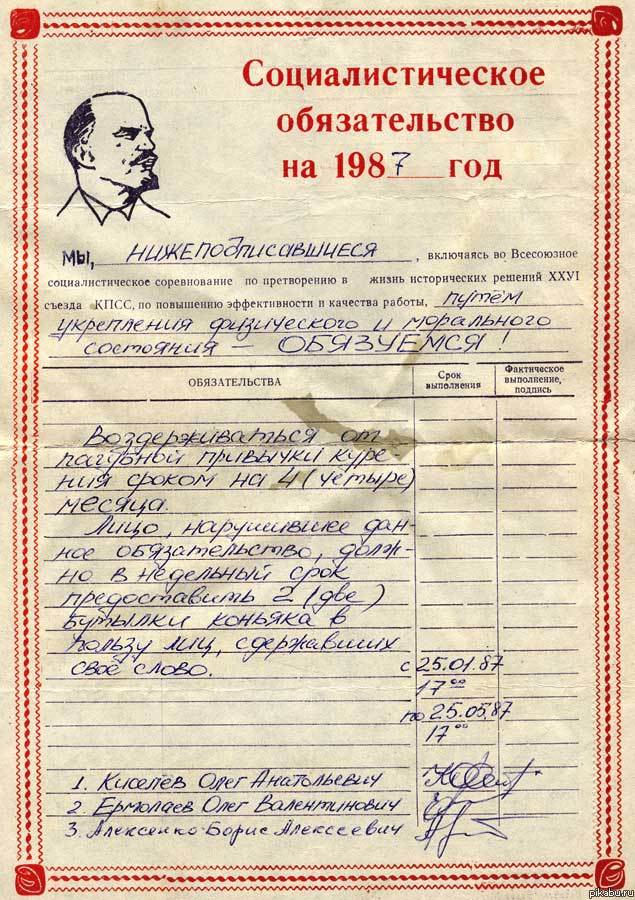 Социалистическое
обязательство
на 1987 год
мы, нижеподписавшиеся, включаясь во Всесоюзное
социалистическое соревнование по претворению в жизнь исторических решений XXVI
съезда КПСС, по повышению эффективности и качества работы, путём
укрепления физического и морального
состояния — ОБЯЗУЕМСЯ!
ОБЯЗАТЕЛЬСТВА
Срок
выполнения
Фактическое
выполнение,
подпись
Воздерживаться от
пагубной привычки куре-
ния сроком на 4 (четыре)
месяца.
Лицо, нарушившее дан-
ное обязательство, долж-
но в недельный срок
предоставить 2 (две)
бутылки коньяка в
пользу лиц, сдержавших
своё слово.
с 25.01.87
17 00
по 25.05.87
17 00
1. Киселёв Олег Анатольевич
2. Ермолаев Олег Валентинович
3. Алексенко Борис Алексеевич
pikabu.ru